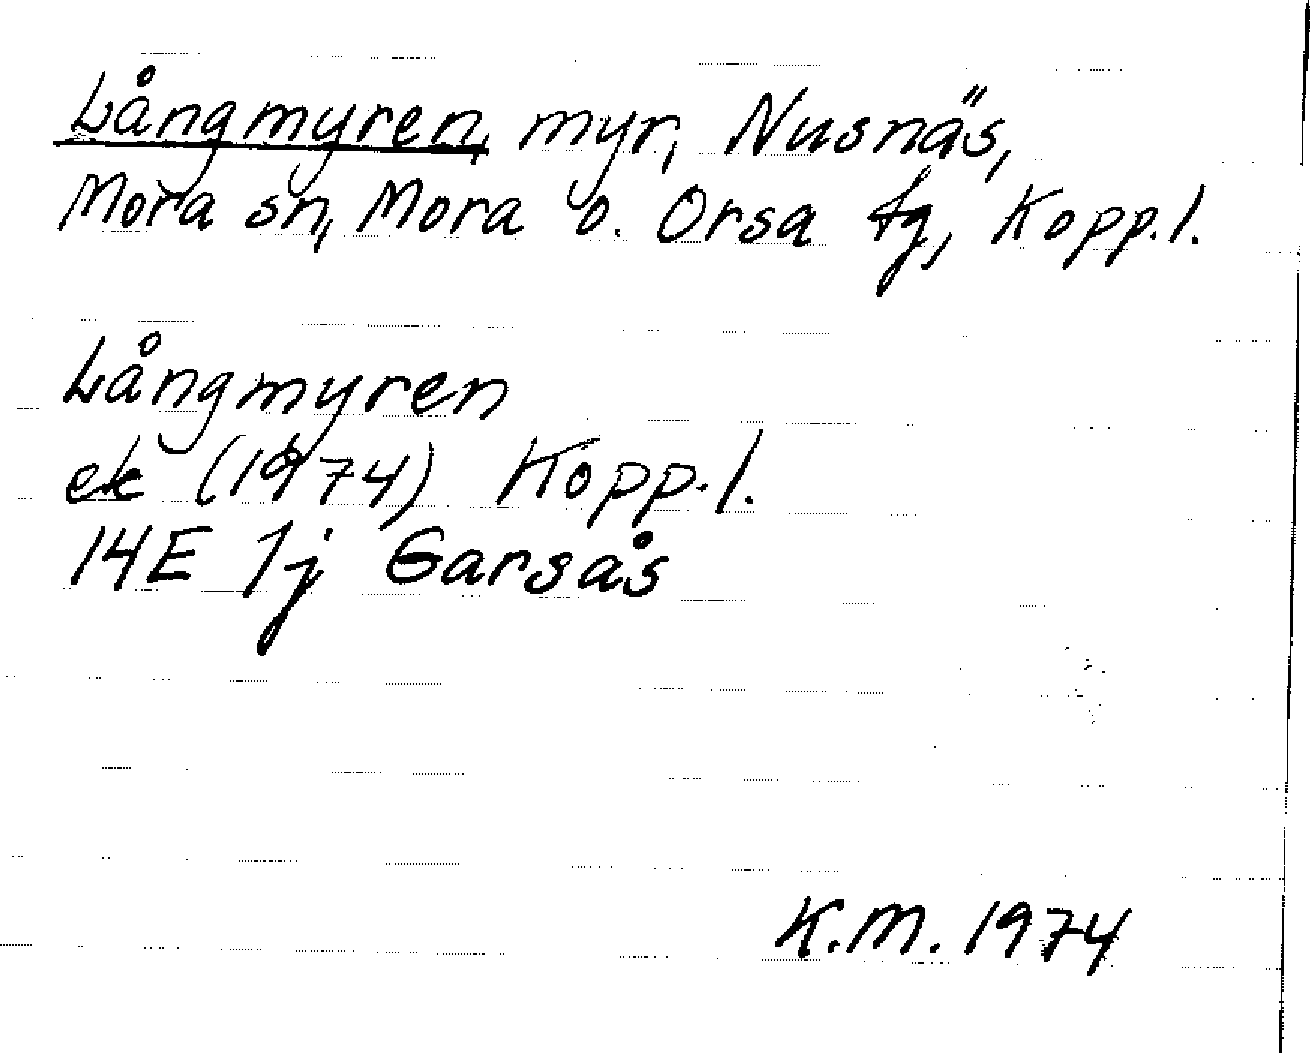 Långmyren, myr, Nusnäs,
Mora sn, Mora o. Orsa tg, Kopp.l.
Långmyren
ek (1974) Kopp.l.
14E 1j Garsås
K.M. 1974